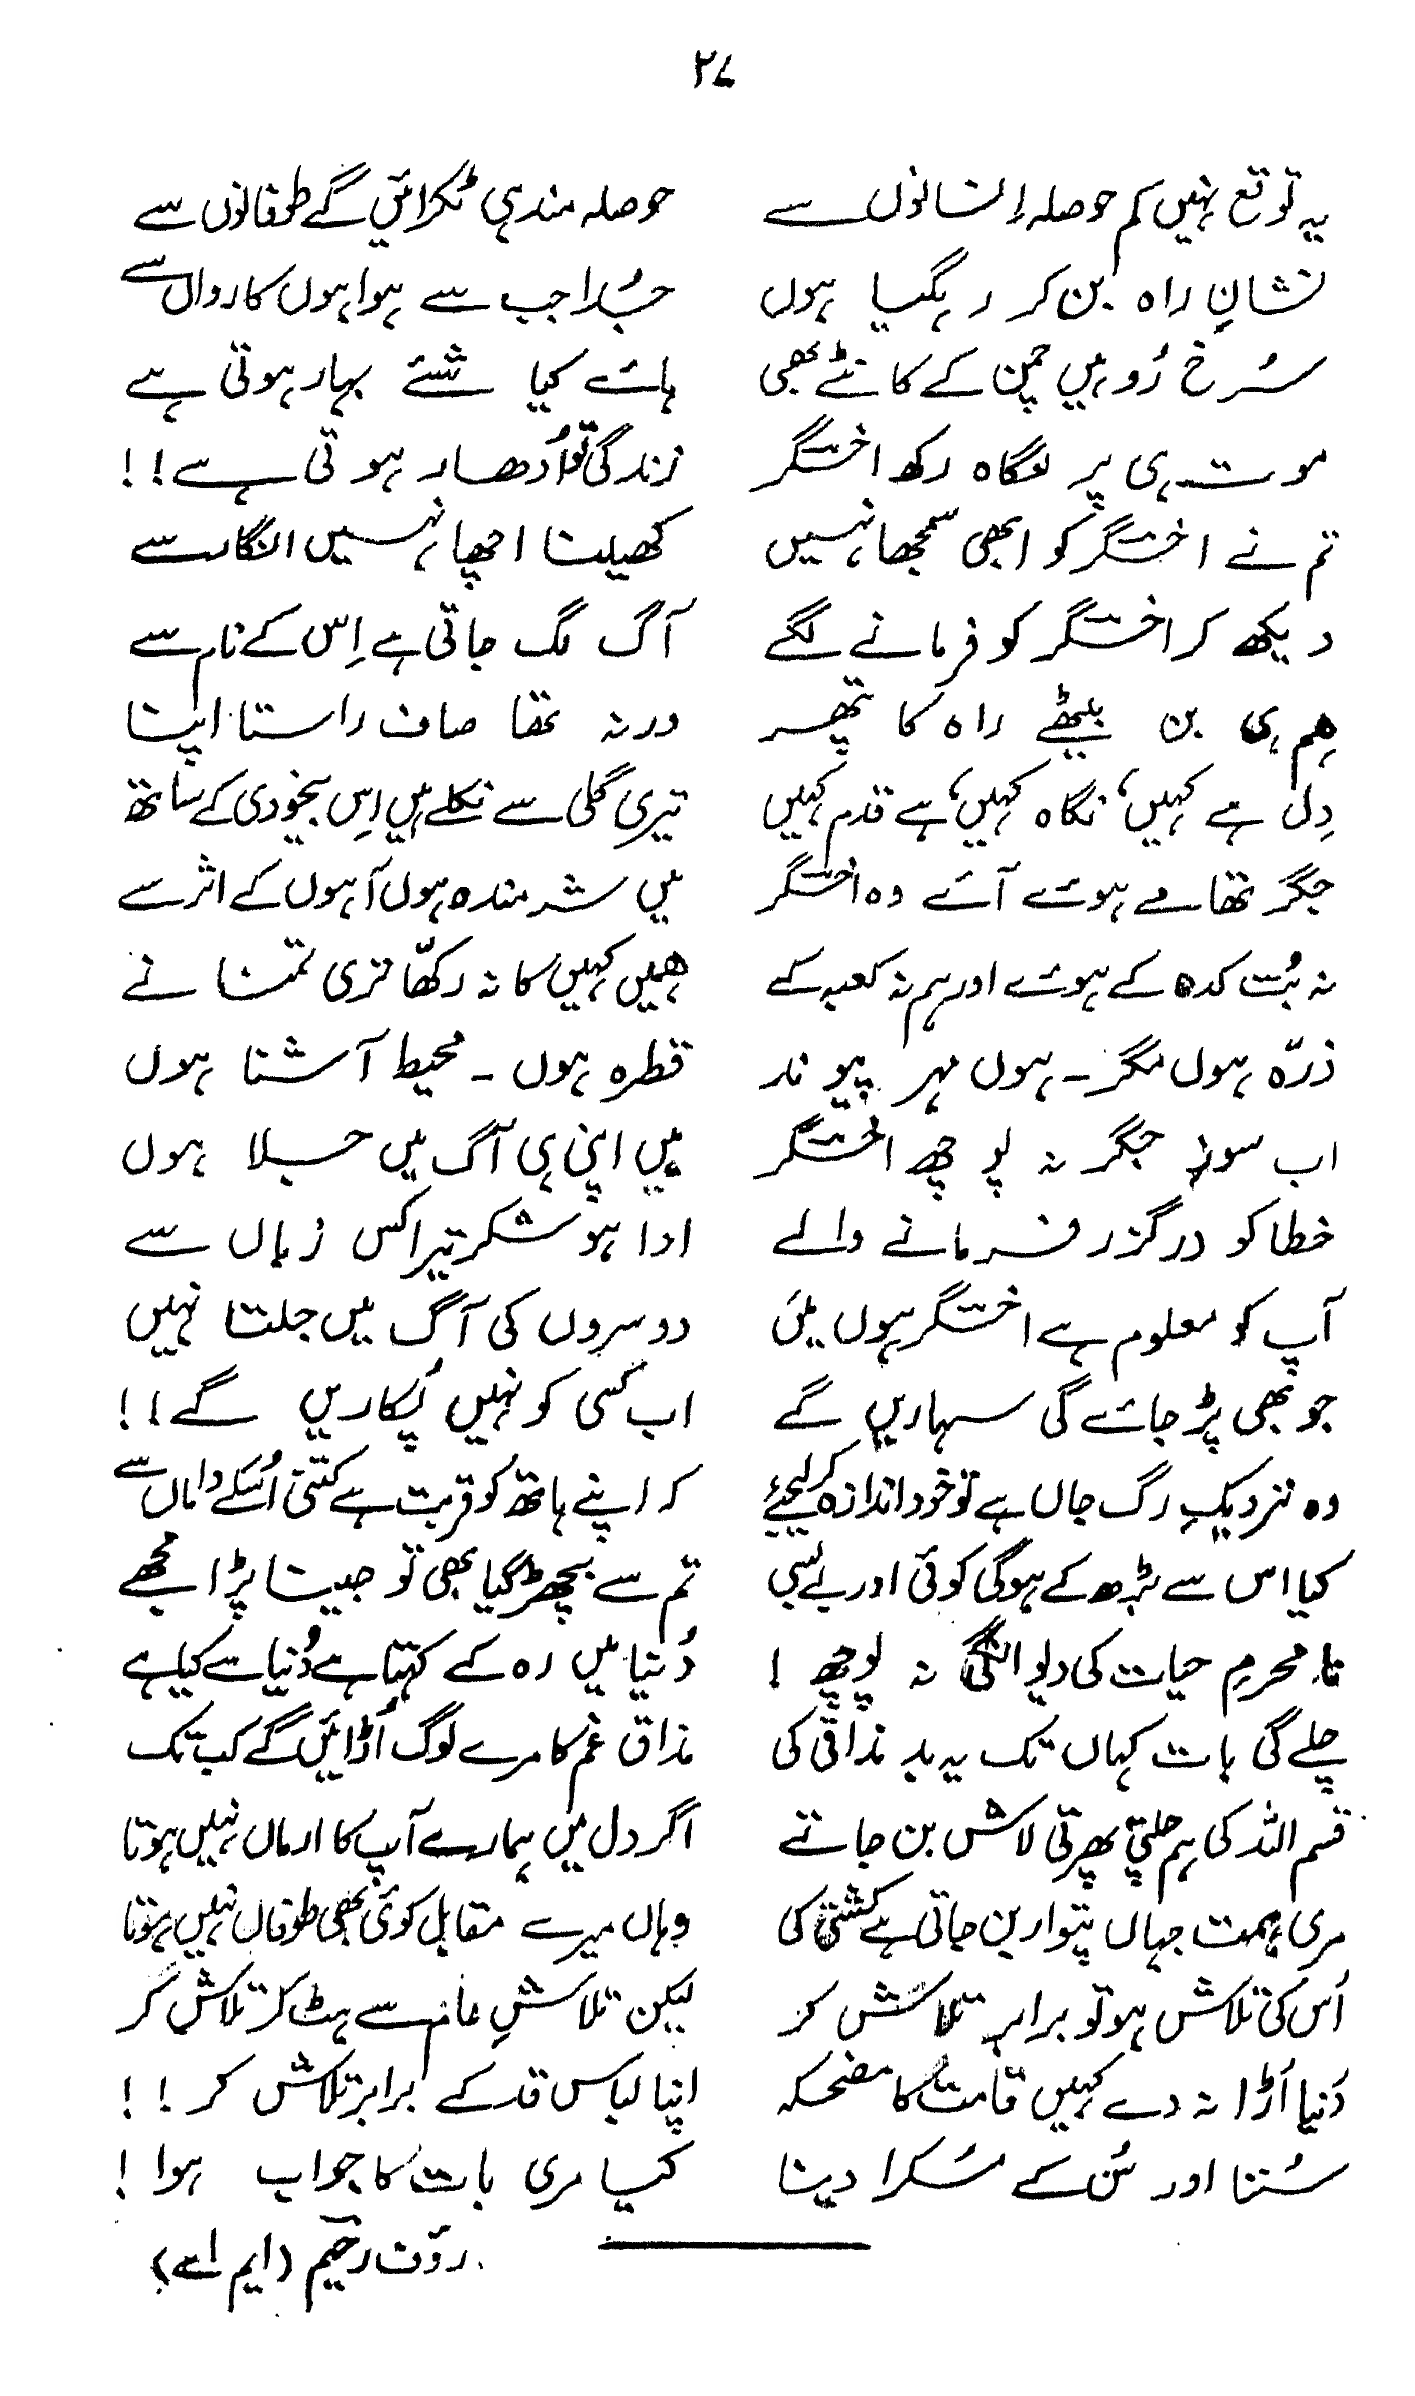 ۲۷
یہ توقع نہیں کم حوصلہ اِنسانوں سے حوصلہ مند ہی ٹکرائیں گے طوفانوں سے
نشانِ راہ بن کر رہ گیا ہوں جُدا جب سے ہوا ہوں کارواں سے
سُرخ رُو ہیں چمن کے کانٹے بھی ہائے کیا شئے بہار ہوتی ہے
موت ہی پر نگاہ رکھ اخگر زندگی تو اُدھار ہوتی ہے!!
تم نے اخگر کو ابھی سمجھا نہیں کھیلنا اچھا نہیں انگار سے
دیکھ کر اخگر کو فرمانے لگے آگ لگ جاتی ہے اِس کے نام سے
ہم ہی بن بیٹھے راہ کا پتھر ورنہ تھا صاف راستا اپنا
دِل ہے کہیں، نگاہ کہیں، ہے قدم کہیں تیری گلی سے نکلے ہیں اِس بیخودی کے ساتھ
جگر تھامے ہوئے آئے وہ اخگر میں شرمندہ ہوں آہوں کے اثر سے
نہ بُت کدہ کے ہوئے اور ہم نہ کعبہ کے ہمیں کہیں کا نہ رکھّا تری تمنا نے
ذرّہ ہوں مگر۔ ہوں مہر پیوند قطرہ ہوں۔ محیط آشنا ہوں
اب سوزِ جگر نہ پوچھ اخگر میں اپنی ہی آگ میں جلا ہوں
خطا کو درگزر فرمانے والے ادا ہو شکر تیرا کس زباں سے
آپ کو معلوم ہے اخگر ہوں میں دوسروں کی آگ میں جلتا نہیں
جو بھی پڑ جائے گی سہاریں گے اب کسی کو نہیں پُکاریں گے!!
وہ نزدیکِ رگ جاں ہے تو خود اندازہ کر لیجئے کہ اپنے ہاتھ کو قربت ہے کتنی اُسکے داماں سے
کیا اس سے بڑھ کے ہوگی کوئی اور بے بسی تم سے بچھڑ گیا بھی تو جینا پڑا مجھے
نا محرمِ حیات کی دیوانگی نہ پوچھ! دُنیا میں رہ کے کہتا ہے دُنیا سے کیا ہے
چلے گی بات کہاں تک یہ بد مذاقی کی مذاق غم کا مرے لوگ اُڑائیں گے کب تک
قسم اللہ کی ہم چلتی پھرتی لاش بن جاتے اگر دل میں ہمارے آپ کا ارماں نہیں ہوتا
مری ہمت جہاں پتوار بن جاتی ہے کشتی کی وہاں میرے مقابل کوئی بھی طوفاں نہیں ہوتا
اُس کی تلاش ہو تو برابر تلاش کر لیکن تلاشِ عام سے ہٹ کر تلاش کر
دُنیا اُڑا نہ دے کہیں قامت کا مضحکہ اپنا لباس قد کے برابر تلاش کر!!
سُننا اور سُن کے مسکرا دینا کیا مری بات کا جواب ہوا!
رؤف رحیم (ایم اے)